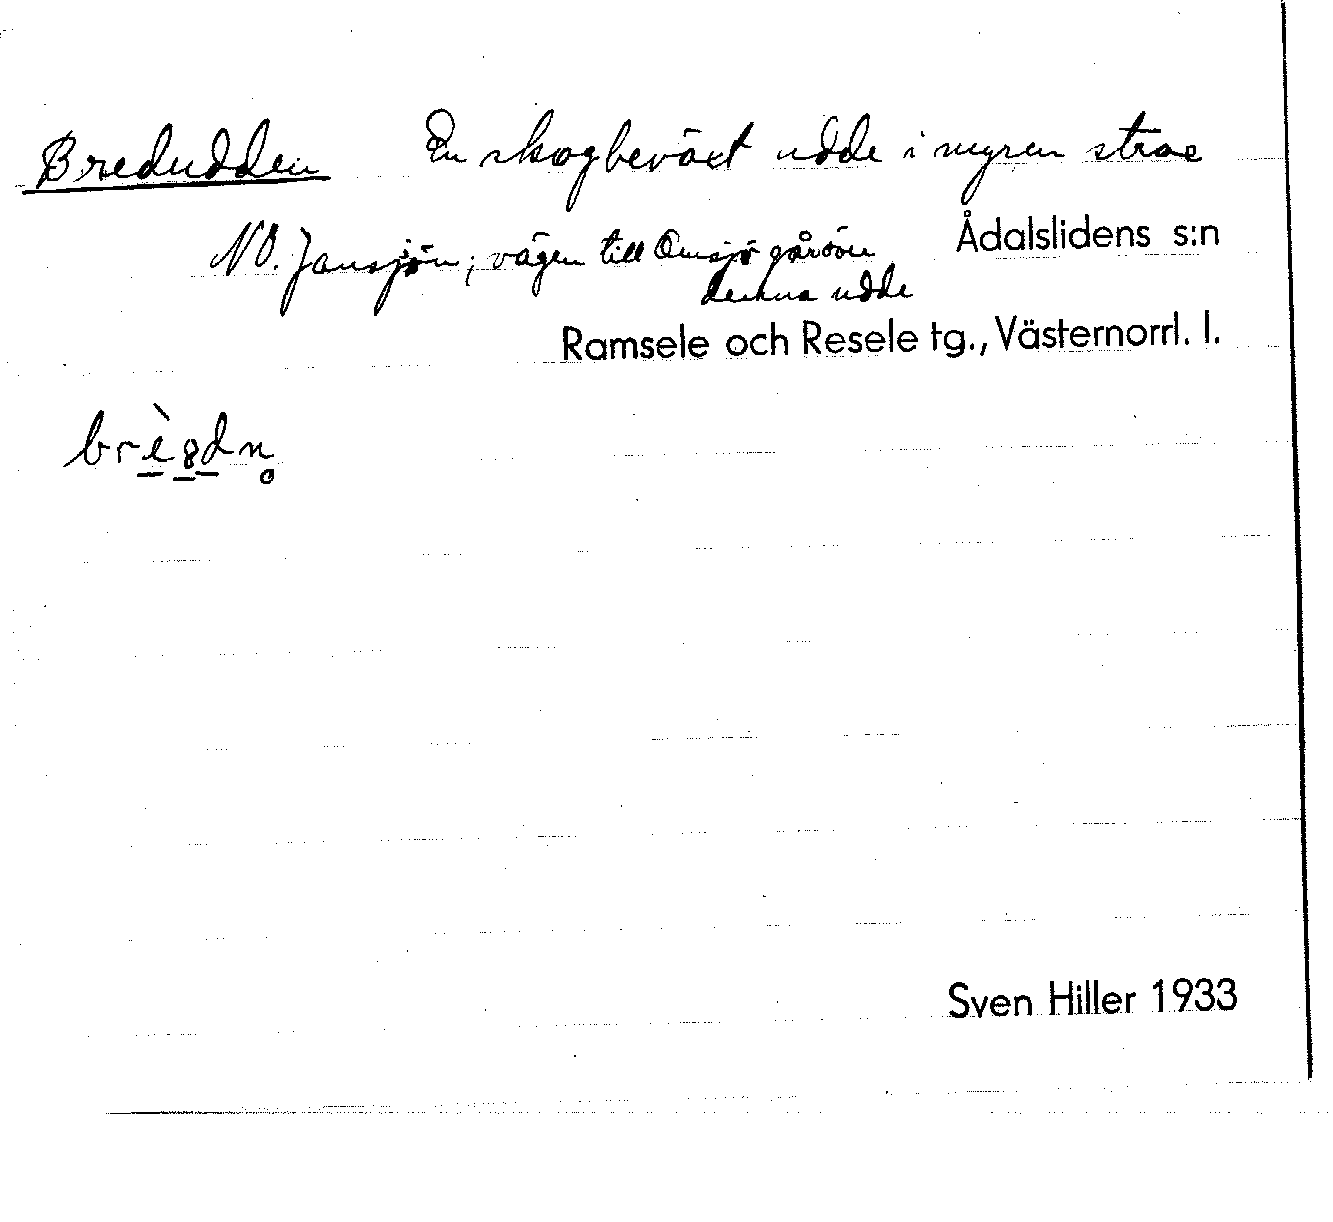 Bredudden En skogbeväxt udde i myren strax
NO. Jansjön; vägen till Omsjö går över
denna udde
Ådalslidens s:n
Ramsele och Resele tg., Västernorrl. l.
Sven Hiller 1933